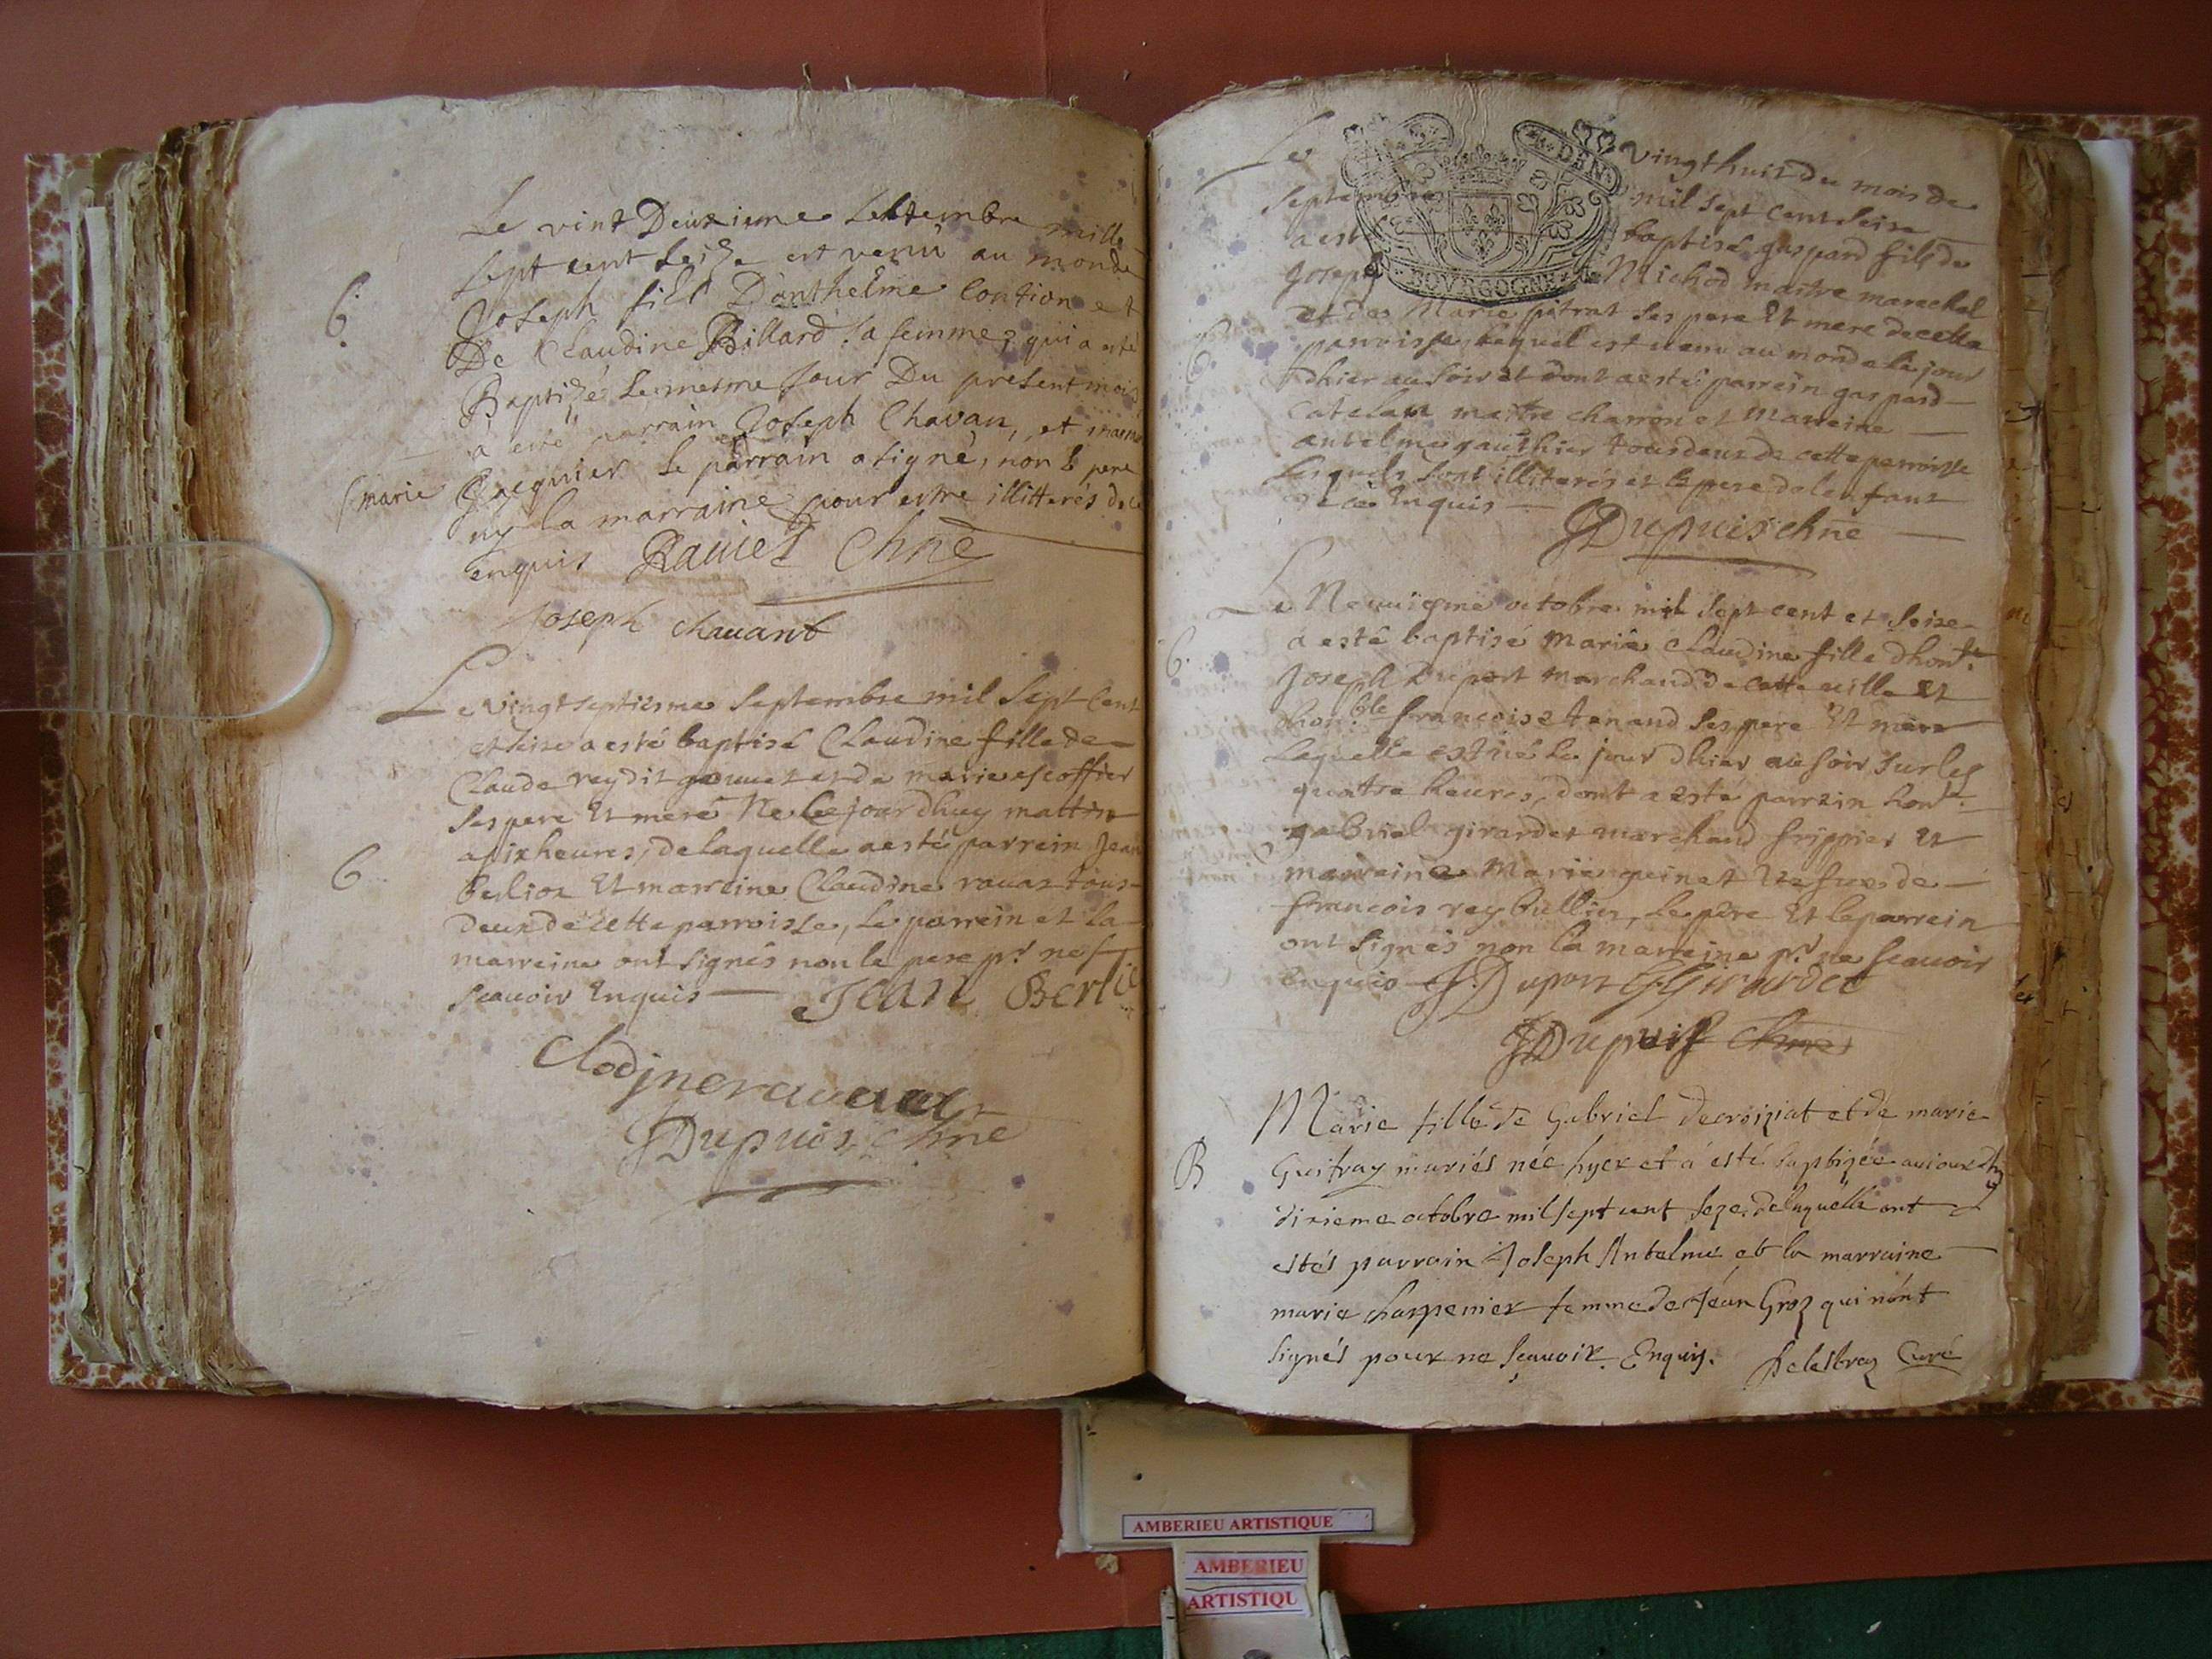 Le vint Deuxieme Septembre mille
Sept cent Seize est venu au monde
6.
Joseph fils Danthelme Contion et
De Claudine Billard Sa femme, qui a esté
Baptizé Le mesme Jour Du present mois
a esté parrain Joseph Chavan, et marraine
marie
Jacquier Le parrain a signé, non le pere
ny la marraine pour estre illitterés de ce
enquis Raviet Chne
Joseph chauant
Le vingtseptiesme Septembre mil Sept Cent
et seise a esté baptisé Claudine fille de
Claude rey dit et de marie escoffier
Ses pere et mere Ne Le jourdhuy mattin
a six heures, de laquelle a esté parrein Jean
6
Berlioz et marreine Claudine ravaz tous
deux de cette parroisse, Le parrein et la
marreine ont signés non le pere pr ne
scavoir Enquis Jean Berli
Clodjne
JDupuis chne
Le vingthuit du mois de
DEN
Septembre mil sept cent seise
a esté baptisé gaspard fils de
Joseph Michod maitre marechal
BOVRGOGNE
et de Marie pitrat ses pere Et mere de cette
parroisse, Lequel est venu au monde le jour
6
dhier au soir et dont a esté parrein gaspard
Catelan maitre charron et Marreine
antelme gauthier tous deux de cette parroisse
Lesquels sont illiterés et le pere de lenfant
de ce Enquis
JDupuis chne
Le Neuuiesme octobre mil sept cent et seise
a esté baptisé Marie Claudine fille dhonle
6.
Joseph Duport marchand de cette ville Et
dhonble francoise tenand ses pere Et mere
Laquelle est née Le jour dhier au soir sur les
quatre heures, dont a esté parrein honle
gabriel girardet marchand frippier Et
marreine Marie guinet Vefue de
francois rey bullier, Le pere Et le parrein
ont signés non la marreine pr ne scauoir
Enquis J. Duport G Girardet
JDupuis chne
Marie fille de Gabriel decroizat et de marie
B
Guifray mariés née hyer et a esté baptizée aujourdhuy
dixieme octobre mil sept cent seze, de laquelle ont
estés parrain Joseph Antelme et la marraine
marie charpenier femme de Jean Groz qui n'ont
signés pour ne scauoir. Enquis. Delestraz Curé
AMBERIEU ARTISTIQUE
AMBERIEU
ARTISTIQU